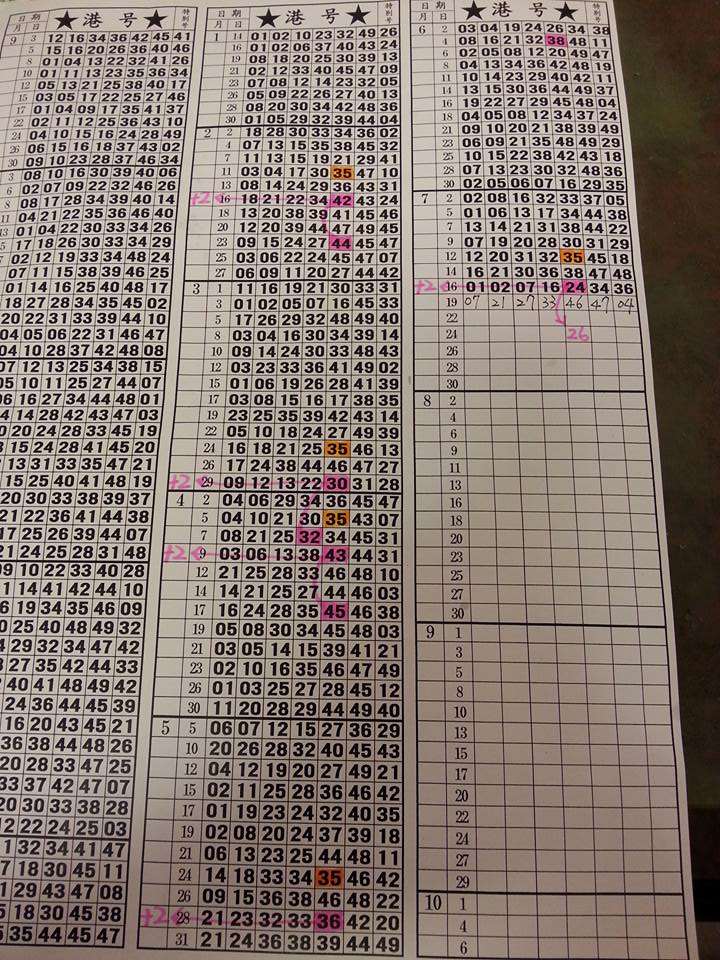 日期 ★港号★ 特别号
月日
9 3 12 16 34 36 42 45 41
5 15 16 20 26 36 40 46
8 01 04 13 22 32 41 26
10 01 11 13 23 35 36 34
12 05 13 21 25 38 40 17
15 03 05 17 22 25 27 46
17 01 04 09 17 35 41 37
22 02 11 12 25 36 43 10
24 04 10 15 16 24 28 49
26 06 15 16 18 37 43 02
30 09 10 23 28 37 46 34
3 08 10 16 30 39 40 06
6 02 07 09 22 32 46 26
8 08 17 28 34 39 40 14
11 04 21 22 35 36 46 40
13 01 04 22 30 33 34 26
5 17 18 26 30 33 34 29
02 12 19 33 34 48 24
07 11 15 38 39 46 25
01 14 16 25 40 48 17
18 27 28 34 35 45 02
20 22 31 33 39 44 10
04 05 06 22 31 46 47
04 10 28 37 42 48 08
07 12 13 25 34 38 15
05 10 11 25 27 44 07
06 16 27 34 44 48 01
14 28 42 43 47 03
20 24 28 33 45 19
15 24 28 41 45 20
13 31 33 35 47 21
15 25 40 41 48 19
30 33 38 39 37
22 36 41 44 38
17 25 26 39 44 07
21 24 25 28 31 48
09 10 22 33 40 28
14 41 42 44 10
19 34 35 46 09
25 40 48 49 32
29 32 34 47 42
27 35 42 44 33
40 41 48 49 42
24 36 44 45 39
16 20 43 45 21
36 38 44 48 26
20 28 33 47 25
33 37 42 47 07
20 30 33 38 28
12 22 24 25 03
32 34 41 47
18 30 45 11
29 43 47 08
18 30 45 38
35 44 45 47
日期 ★港号★ 特别号
月日
1 14 01 02 10 23 32 49 26
16 01 02 06 37 40 43 24
19 08 18 20 25 30 39 13
21 02 12 33 40 45 47 09
23 07 08 12 14 23 32 05
26 05 09 22 26 27 40 13
28 08 20 30 34 42 48 36
30 01 05 29 32 39 44 04
2 2 18 28 30 33 34 36 02
4 07 13 15 35 38 45 32
7 11 13 15 19 21 29 41
11 03 04 17 30 35 47 10
13 08 14 24 29 36 43 31
+2 16 18 21 22 34 42 43 24
18 13 20 38 39 41 45 46
20 12 20 39 49 47 49 45
23 09 15 24 27 44 47 09
25 03 06 22 24 45 47 07
27 06 09 11 20 27 44 42
3 1 11 16 19 21 30 33 31
3 01 02 05 07 16 45 33
5 17 26 29 32 48 49 40
8 03 04 16 30 34 39 14
10 09 14 24 30 33 48 43
12 03 23 33 36 41 49 02
15 01 06 19 26 28 41 39
17 03 08 15 16 17 38 35
19 23 25 35 39 42 43 14
22 05 10 18 24 27 49 39
24 16 18 21 25 35 46 13
26 17 24 38 44 46 47 27
+2 29 09 12 13 22 30 31 28
4 2 04 06 29 34 36 45 47
5 04 10 21 30 35 43 07
7 08 21 25 32 34 45 31
+2 9 03 06 13 38 43 44 31
12 21 25 28 33 46 48 10
14 14 21 25 27 44 46 03
17 16 24 28 35 45 46 38
19 05 08 30 34 45 48 03
21 03 05 14 15 39 41 21
23 02 10 16 35 46 47 49
26 01 03 25 27 28 45 12
30 11 20 28 29 44 49 40
5 5 06 07 12 15 27 36 29
10 20 26 28 32 40 45 43
12 04 12 19 20 27 49 21
15 02 11 28 36 42 44 37
17 01 19 23 24 32 40 35
19 02 08 20 24 37 39 18
21 06 13 23 25 44 48 11
24 14 18 33 34 35 46 42
26 09 15 36 38 46 48 22
+2 28 21 23 32 33 36 42 20
31 21 24 36 38 39 44 49
日期 ★港号★ 特别号
月日
6 2 03 04 19 24 26 34 38
4 08 16 21 32 38 48 11
6 02 05 08 12 20 49 47
8 04 13 34 36 42 48 19
11 10 14 23 29 40 42 11
14 13 15 30 36 44 49 37
16 19 22 27 29 45 48 04
18 04 05 08 12 34 37 24
21 09 10 20 21 38 39 49
23 06 09 21 35 48 49 29
25 10 15 22 38 42 43 18
28 07 13 23 30 32 48 36
30 02 05 06 07 16 29 35
7 2 02 08 16 32 33 37 05
5 01 06 13 17 34 44 38
7 13 14 21 31 38 44 22
9 07 19 20 28 30 31 29
12 12 20 31 32 35 45 18
14 16 21 30 36 38 47 48
+2 16 01 02 07 16 24 34 36
19 07 21 27 33 46 47 04
22
24 26
26
28
30
8 2
4
6
9
11
13
16
18
20
23
25
27
30
9 1
3
5
8
10
13
15
17
20
22
24
27
29
10 1
4
6